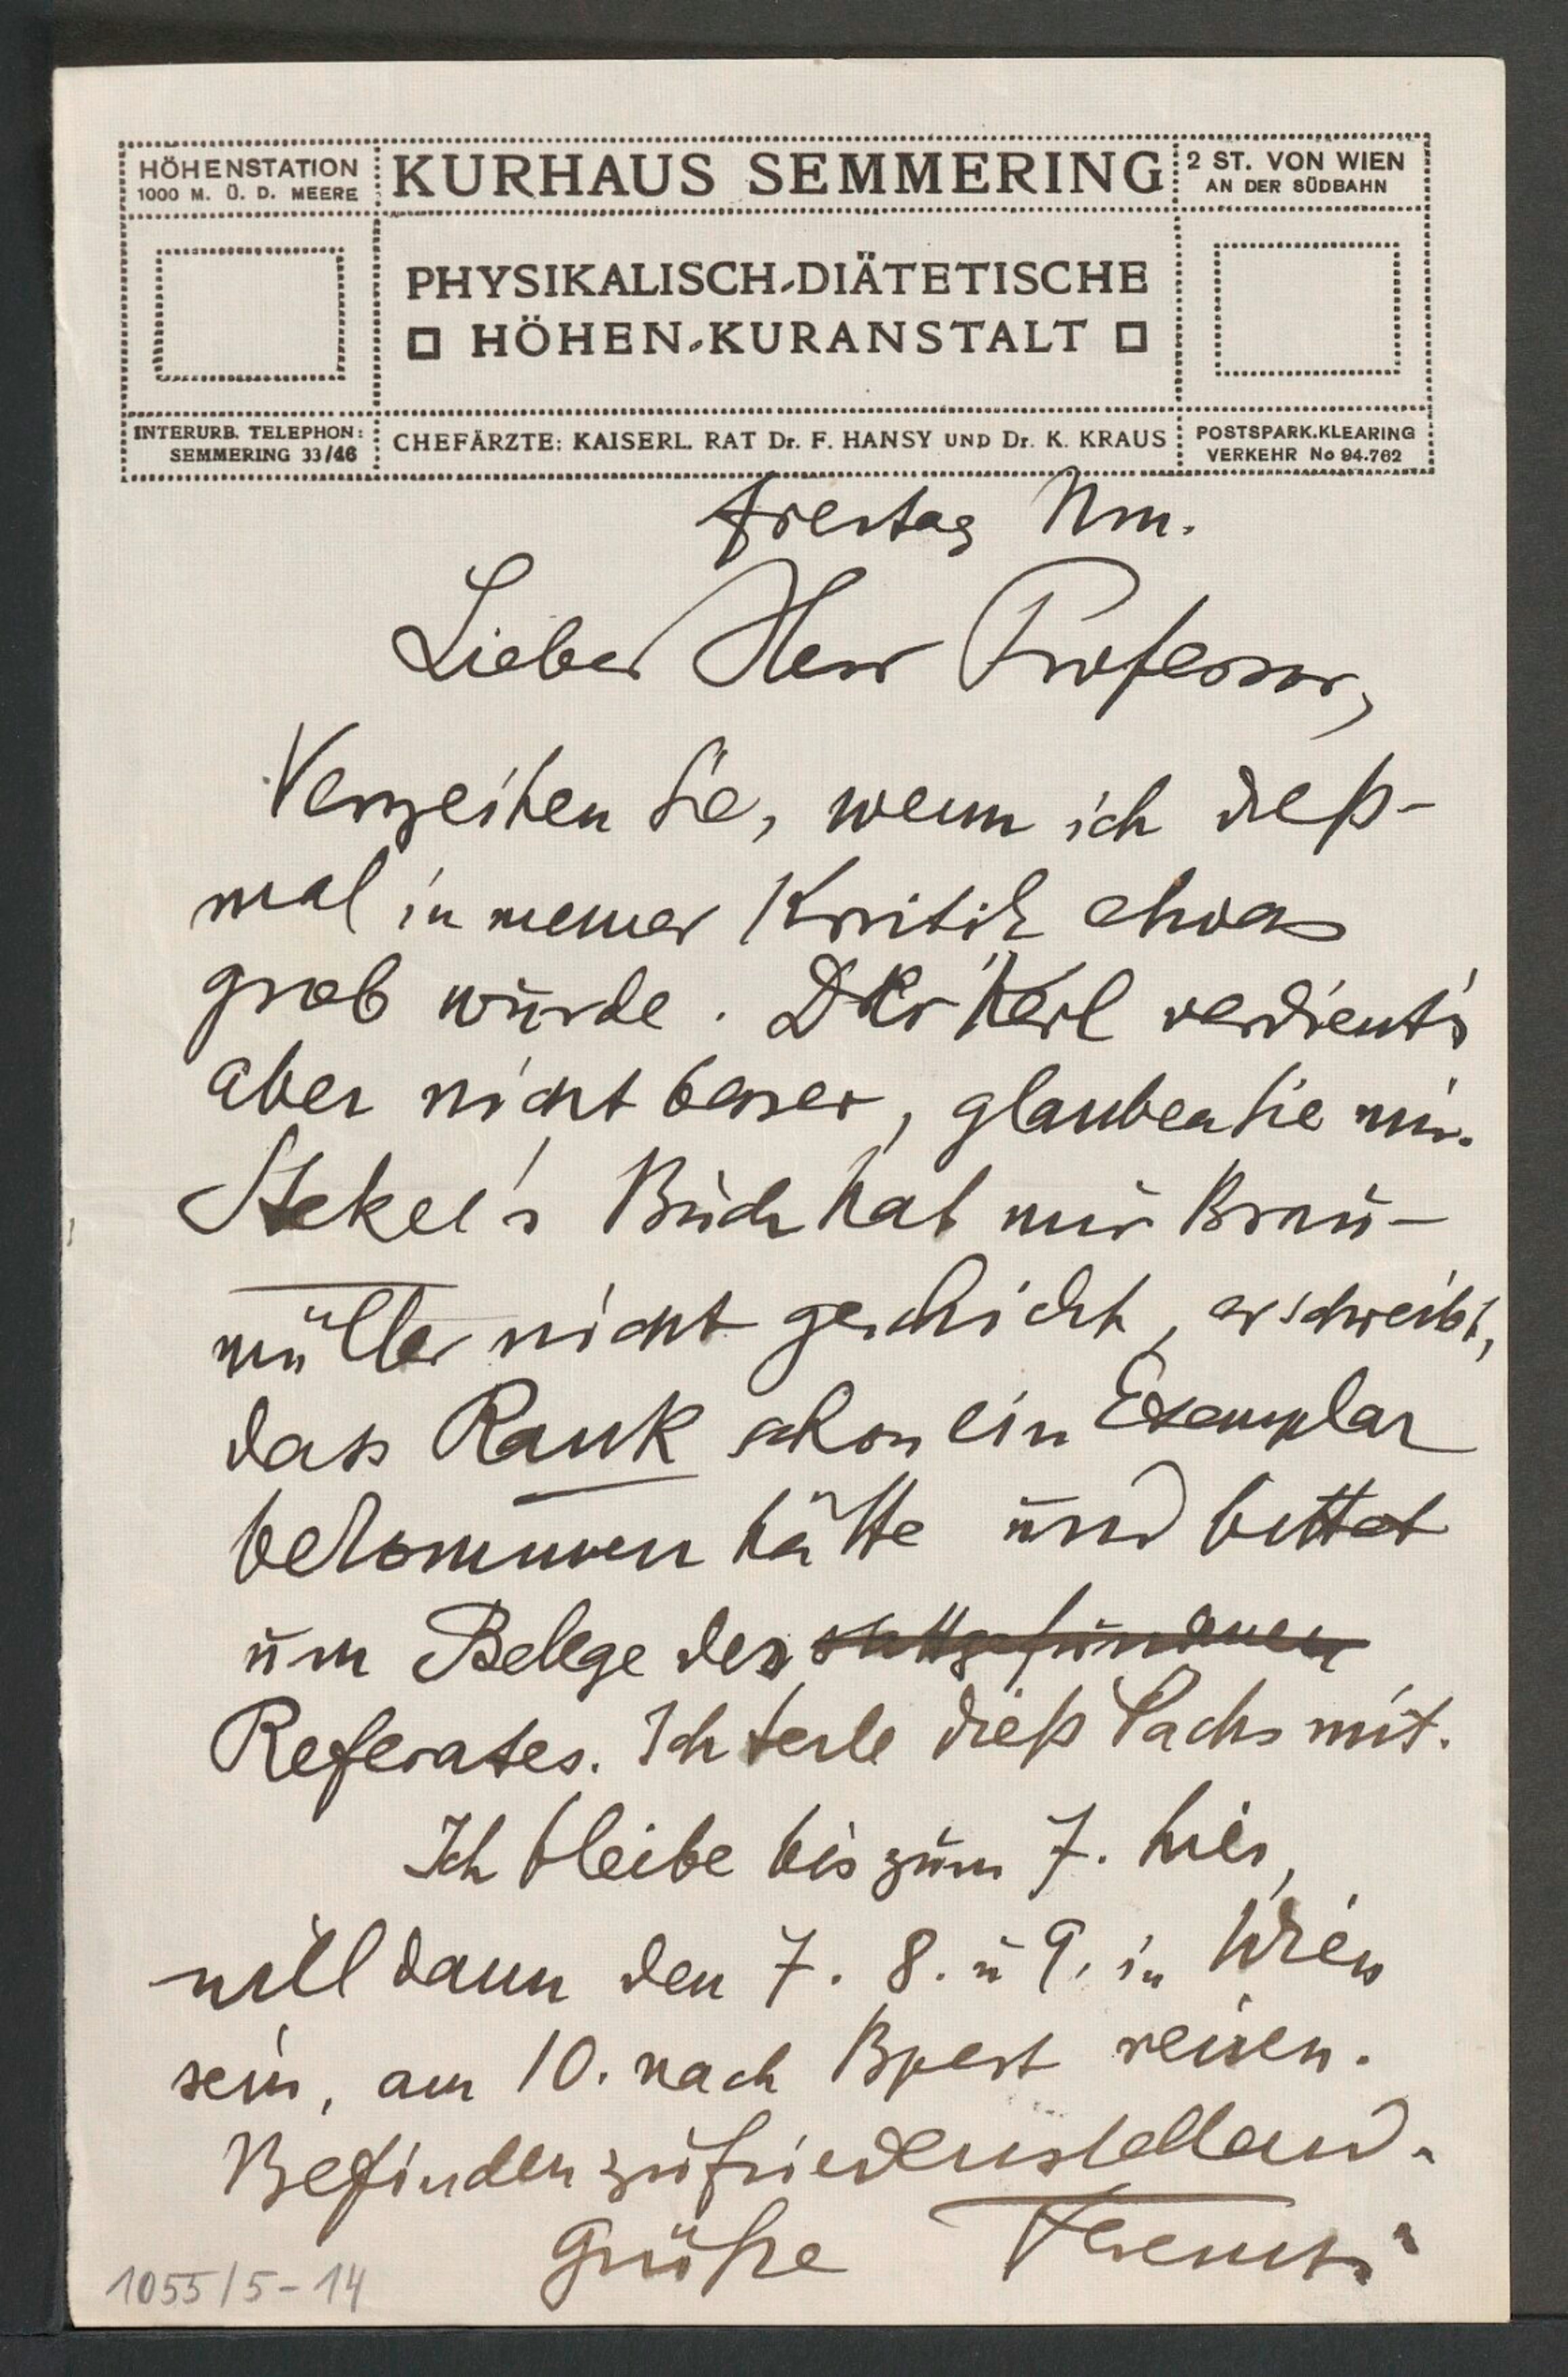 HÖHENSTATION
1000 M. Ü. D. MEERE
KURHAUS SEMMERING
2 ST. VON WIEN
AN DER SÜDBAHN
PHYSIKALISCH-DIÄTETISCHE
HÖHEN-KURANSTALT
INTERURB. TELEPHON:
SEMMERING 33/46
CHEFÄRZTE: KAISERL. RAT Dr. F. HANSY UND Dr. K. KRAUS
POSTSPARK.KLEARING
VERKEHR No 94.762
Freitag Nm.
Lieber Herr Professor,
Verzeihen Sie, wenn ich dieß-
mal in meiner Kritik etwas
grob wurde. Der Kerl verdient's
aber nicht besser, glauben Sie mir.
Stekel's Buch hat mir Brau-
müller nicht geschickt, er schreibt,
dass Rank schon ein Exemplar
bekommen hätte und bittet
um Belege des stattgefundenen
Referates. Ich teile dieß Sachs mit.
Ich bleibe bis zum 7. hier,
will dann den 7. 8. u 9. in Wien
sein, am 10. nach Bpest reisen.
Befinden zufriedenstellend.
Grüße Ferenczi
1055/5-14